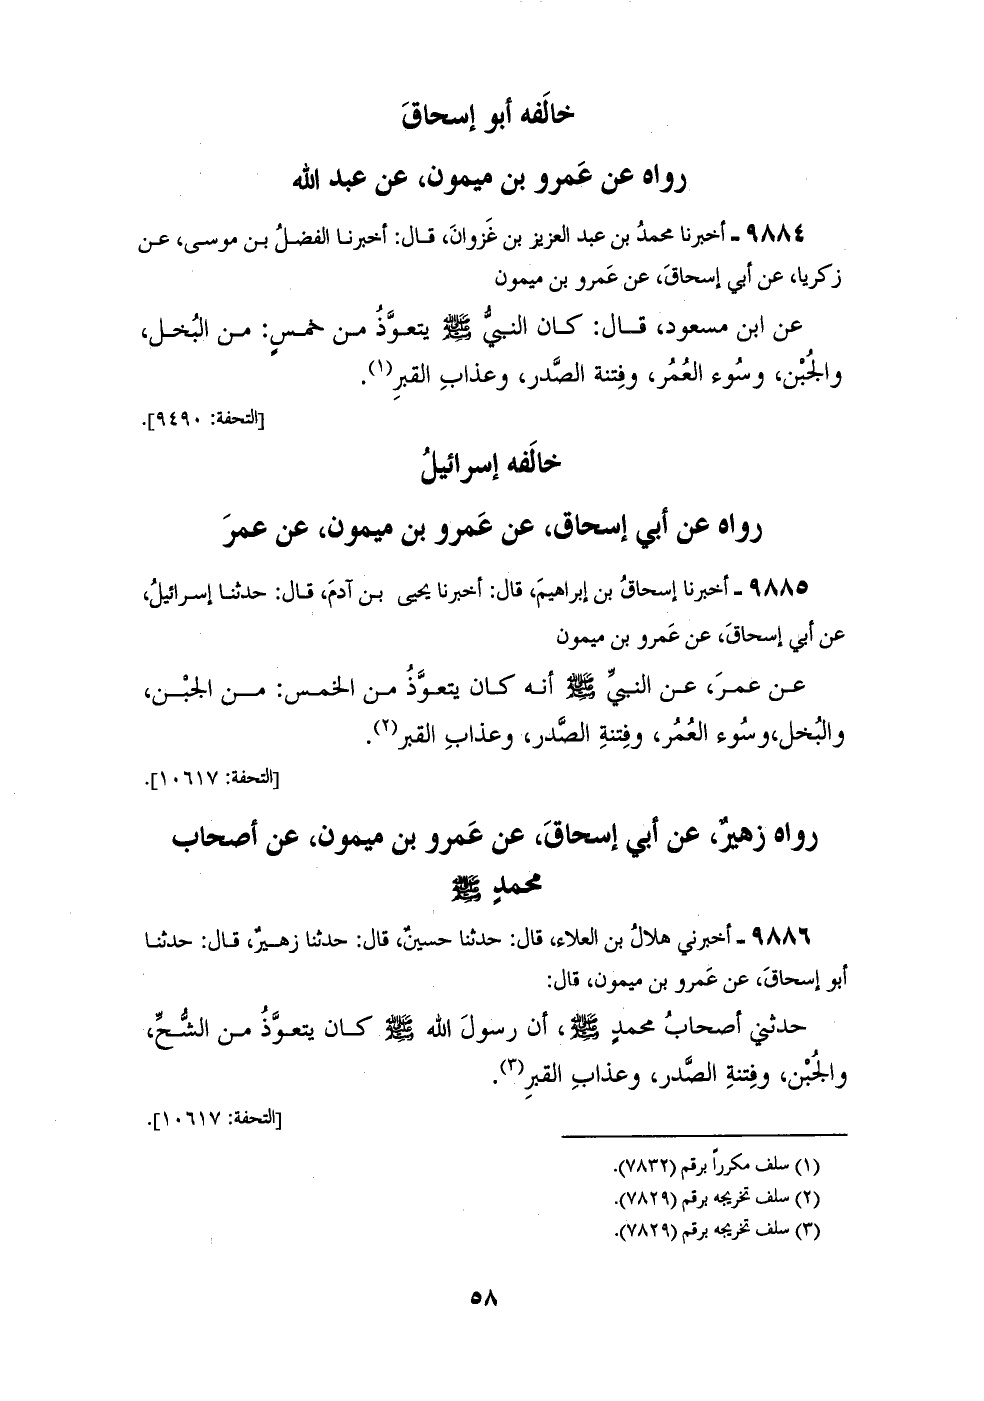 خالَفه أبو إسحاقَ
رواه عن عَمرو بن ميمون، عن عبد الله
٩٨٨٤ ـ أخبرنا محمدُ بن عبد العزيز بن غَزوانَ، قال: أخبرنا الفضلُ بن موسى، عن
زكريا، عن أبي إسحاقَ، عن عَمرو بن ميمون
عن ابن مسعود، قال: كان النبيُّ ﷺ يتعوَّذُ من خمسٍ: من البُخل،
والجُبْن، وسُوء العُمُر، وفتنة الصَّدر، وعذابِ القبرِ(١).
[التحفة: ٩٤٩٠].
خالَفه إسرائيلُ
رواه عن أبي إسحاق، عن عَمرو بن ميمون، عن عمرَ
٩٨٨٥ ـ أخبرنا إسحاقُ بن إبراهيمَ، قال: أخبرنا يحيى بن آدمَ، قال: حدثنا إسرائيلُ،
عن أبي إسحاقَ، عن عَمرو بن ميمون
عن عمرَ، عن النبيِّ ﷺ أنه كان يتعوَّذُ من الخمس: من الجبْن،
والبُخل،وسُوء العُمُر، وفِتنةِ الصَّدر، وعذابِ القبر(٢).
[التحفة: ١٠٦١٧].
رواه زهيرٌ، عن أبي إسحاقَ، عن عَمرو بن ميمون، عن أصحاب
محمدٍ ﷺ
٩٨٨٦ ـ أخبرني هلالُ بن العلاء، قال: حدثنا حسينٌ، قال: حدثنا زهيرٌ، قال: حدثنا
أبو إسحاقَ، عن عَمرو بن ميمون، قال:
حدثني أصحابُ محمدٍ ﷺ، أن رسولَ الله ﷺ كان يتعوَّذُ من الشُّحِّ،
والجُبْن، وفِتنةِ الصَّدر، وعذابِ القبرِ(٣).
[التحفة: ١٠٦١٧].
(١) سلف مكرراً برقم (٧٨٣٢).
(٢) سلف تخريجه برقم (٧٨٢٩).
(٣) سلف تخريجه برقم (٧٨٢٩).
٥٨